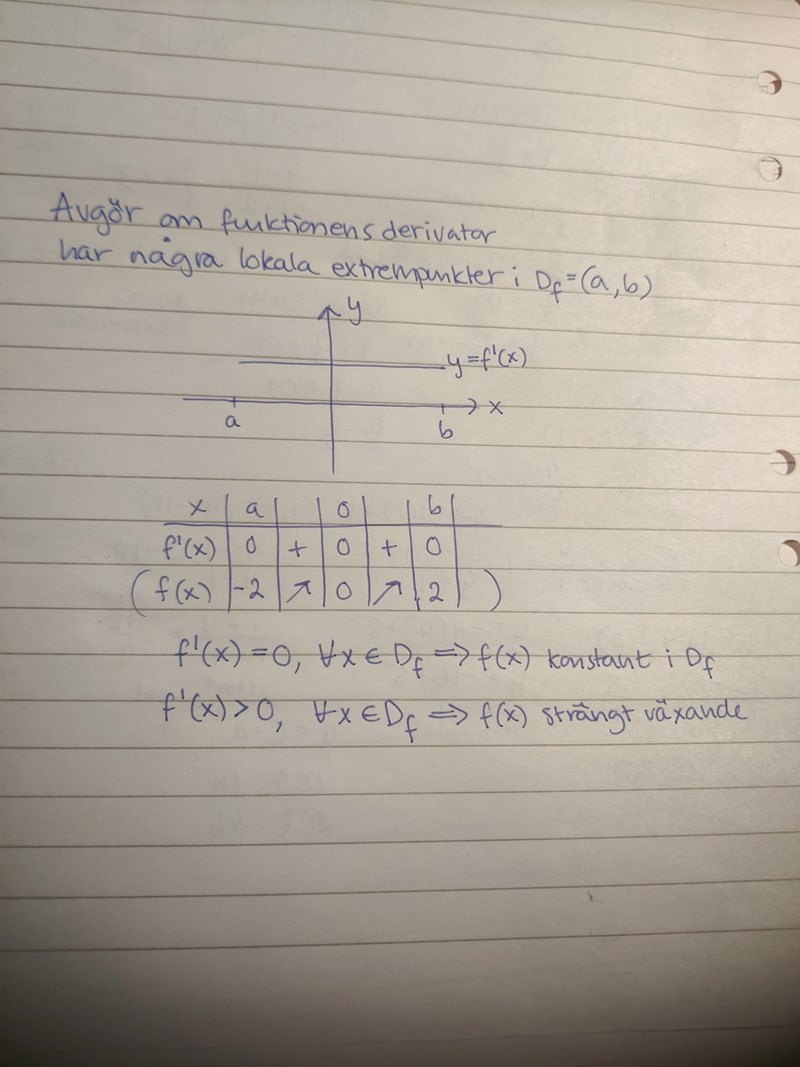 Avgör om funktionens derivator
har några lokala extrempunkter i Df=(a,b)
y
y=f'(x)
x
a
b
x | a | | 0 | | b |
f'(x) | 0 | + | 0 | + | 0 |
(f(x) | -2 | ↗ | 0 | ↗ | 2 | )
f'(x)=0, ∀x∈Df ⇒ f(x) konstant i Df
f'(x)>0, ∀x∈Df ⇒ f(x) strängt växande